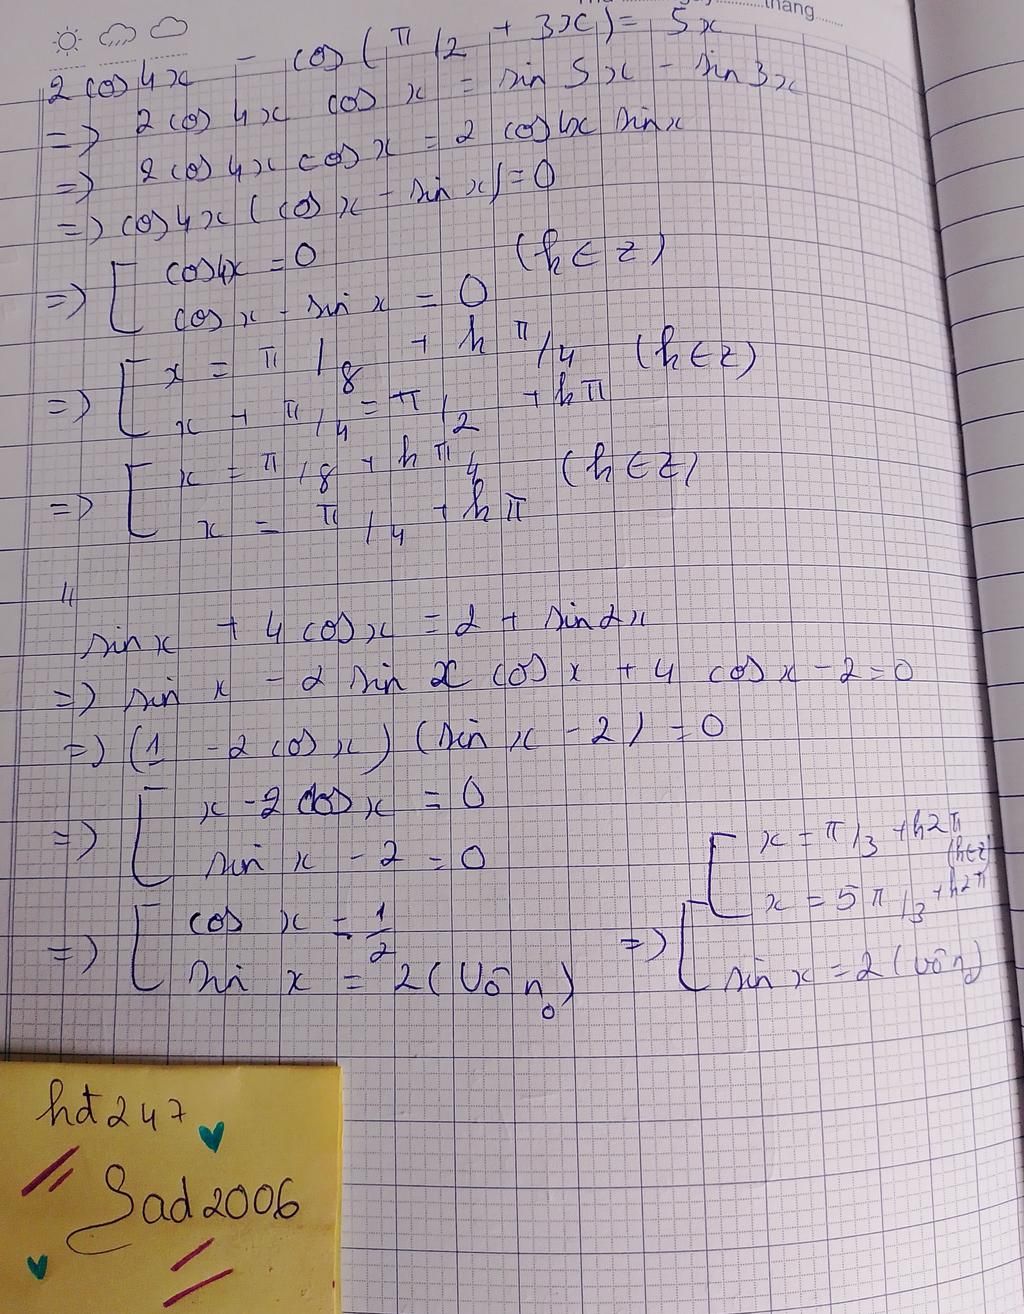 tháng
2 cos 4x - cos (π/2 + 3x) = 5x
=> 2 cos 4x cos x = sin 5x - sin 3x
=> 2 cos 4x cos x = 2 cos 4x sin x
=> cos 4x (cos x - sin x) = 0
=> [ cos 4x = 0 (k ∈ Z)
cos x - sin x = 0
=> [ x = π/8 + k π/4 (k ∈ Z)
x + π/4 = π/2 + kπ
=> [ x = π/8 + k π/4 (k ∈ Z)
x = π/4 + k π
4
sin x + 4 cos x = 2 + sin 2x
=> sin x - 2 sin x cos x + 4 cos x - 2 = 0
=> (1 - 2 cos x) (sin x - 2) = 0
=> [ x - 2 cos x = 0
sin x - 2 = 0
=> [ cos x = 1/2
sin x = 2 (Vô n0)
=> [ [ x = π/3 + k2π (k∈Z)
x = 5π/3 + k2π
sin x = 2 (vô n)
hđ247
Sad2006